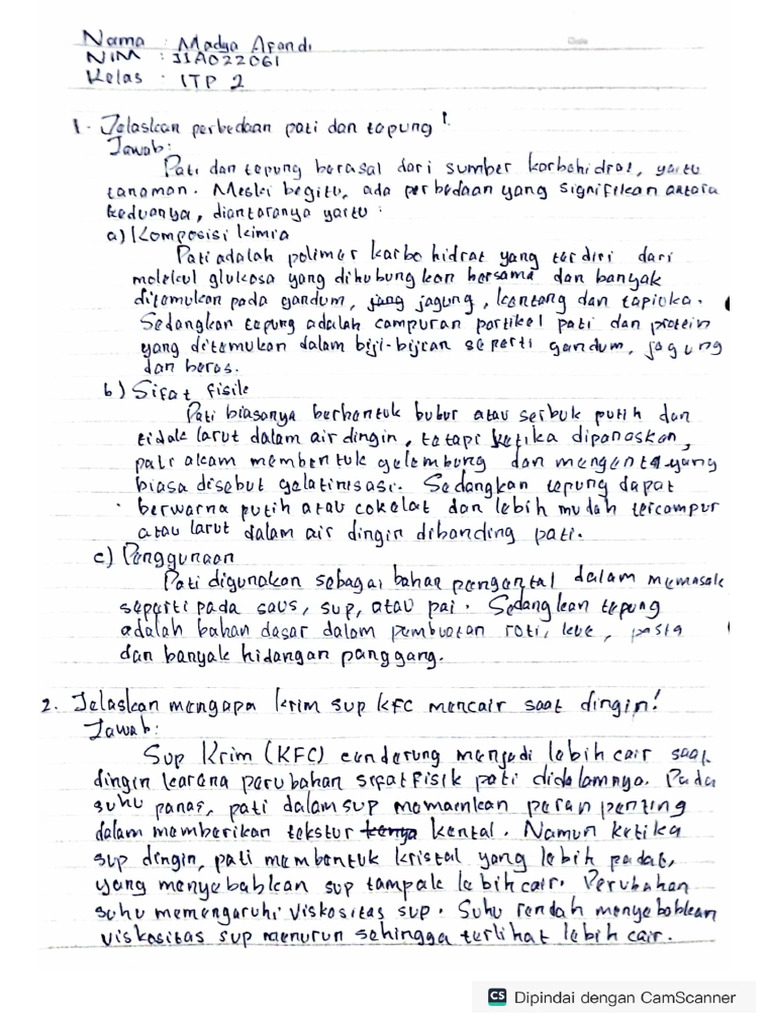 Nama : Madya Afandi
NIM : J1A022061
Kelas : ITP 2
1. Jelaskan perbedaan pati dan tepung!
Jawab:
Pati dan tepung berasal dari sumber karbohidrat, yaitu
tanaman. Meski begitu, ada perbedaan yang signifikan antara
keduanya, diantaranya yaitu :
a) Komposisi kimia
Pati adalah polimer karbohidrat yang terdiri dari
molekul glukosa yang dihubungkan bersama dan banyak
ditemukan pada gandum, jang jagung, kentang dan tapioka.
Sedangkan tepung adalah campuran partikel pati dan protein
yang ditemukan dalam biji-bijian seperti gandum, jagung
dan beras.
b) Sifat fisik
Pati biasanya berbentuk bubur atau serbuk putih dan
tidak larut dalam air dingin, tetapi ketika dipanaskan,
pati akam membentuk gelembung dan mengental yang
biasa disebut gelatinisasi. Sedangkan tepung dapat
berwarna putih atau cokelat dan lebih mudah tercampur
atau larut dalam air dingin dibanding pati.
c) Penggunaan
Pati digunakan sebagai bahan pengental dalam memasak
seperti pada saus, sup, atau pai. Sedangkan tepung
adalah bahan dasar dalam pembuatan roti, kue, pasta
dan banyak hidangan panggang.
2. Jelaskan mengapa krim sup KFC mencair saat dingin!
Jawab:
Sup Krim (KFC) cenderung menjadi lebih cair saat
dingin karena perubahan sifat fisik pati didalamnya. Pada
suhu panas, pati dalam sup memainkan peran penting
dalam memberikan tekstur kental. Namun ketika
sup dingin, pati membentuk kristal yang lebih padat,
yang menyebabkan sup tampak lebih cair. Perubahan
suhu memengaruhi viskositas sup. Suhu rendah menyebabkan
viskositas sup menurun sehingga terlihat lebih cair.
CS Dipindai dengan CamScanner